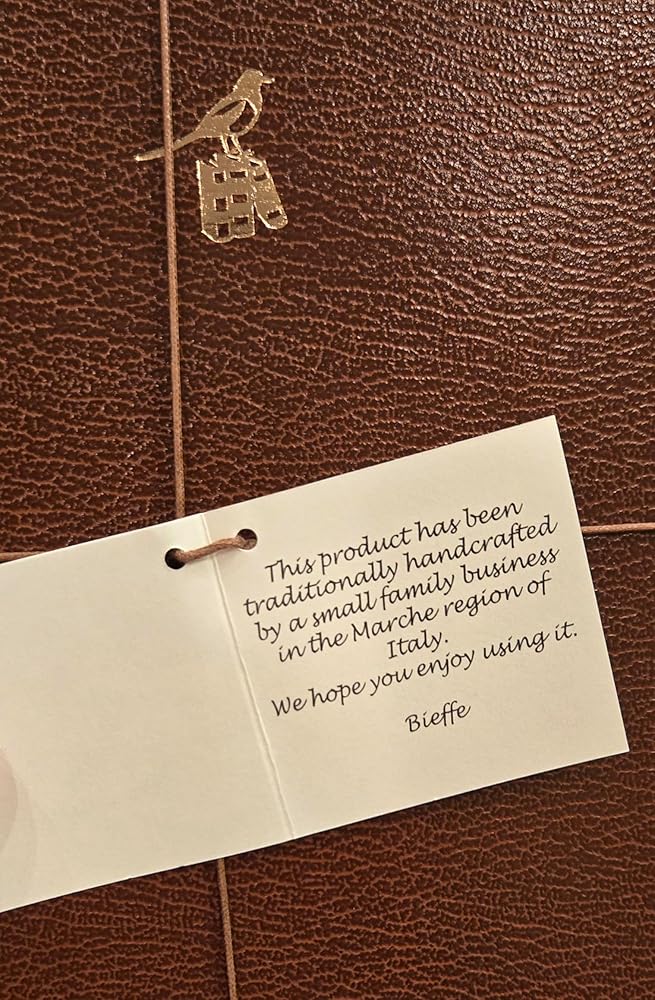 This product has been
traditionally handcrafted
by a small family business
in the Marche region of
Italy.
We hope you enjoy using it.
Bieffe